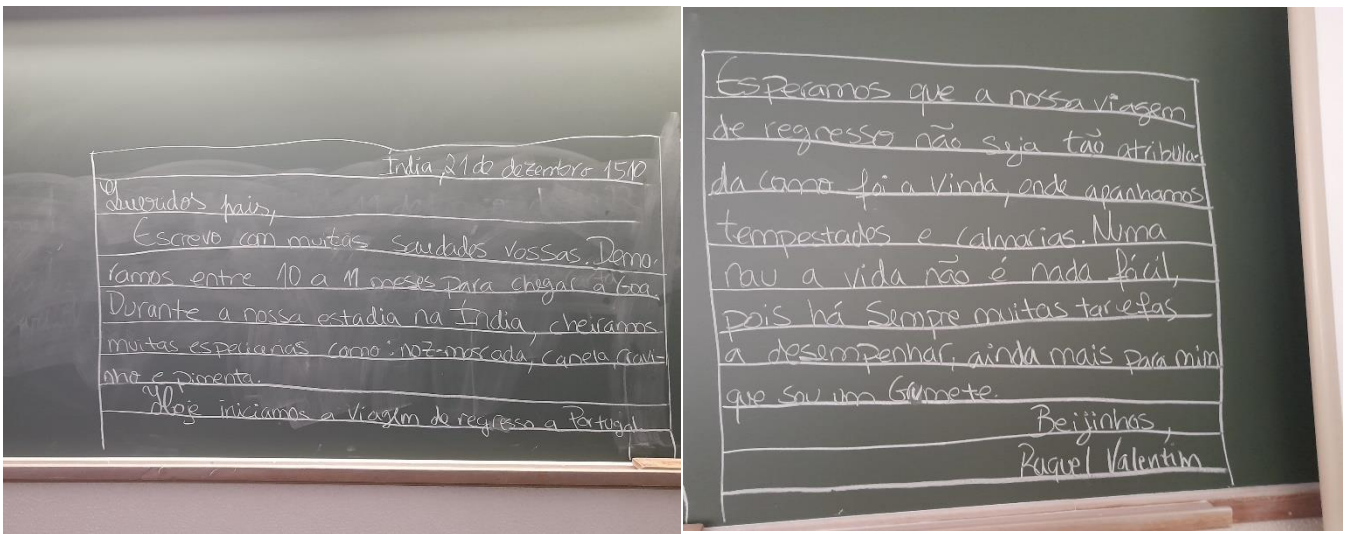 Índia, 21 de dezembro 1510
Queridos pais,
Escrevo com muitas saudades vossas. Demo-
ramos entre 10 a 11 meses para chegar a Goa.
Durante a nossa estadia na Índia, cheiramos
muitas especiarias como: noz-moscada, canela, cravi-
nho e pimenta.
Hoje iniciamos a viagem de regresso a Portugal
Esperamos que a nossa viagem
de regresso não seja tão atribula-
da como foi a vinda, onde apanhamos
tempestades e calmarias. Numa
nau a vida não é nada fácil,
pois há sempre muitas tarefas
a desempenhar, ainda mais para mim
que sou um Grumete.
Beijinhos,
Raquel Valentim